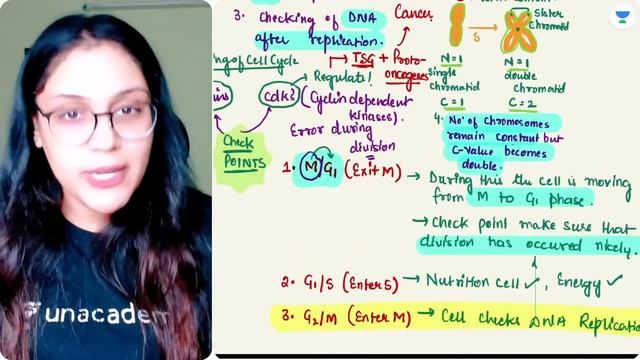 3. Checking of DNA
after replication.
Cancer
TSG + Proto-
oncogenes
ng of Cell Cycle
Regulate!
ins
Cdk's
(Cyclin dependent
kinases).
Check
POINTS
Error during
division
1. M/G1 (Exit M) → During this the cell is moving
from M to G1 phase.
→ Check point make sure that
division has occured nicely.
2. G1/S (Enter S) → Nutrition cell ✓, Energy ✓
3. G2/M (Enter M) → Cell checks DNA Replicatio
S
Sister
Chromatid
N=1
single
chromatid
C=1
N=1
double
chromatid
C=2
4. No. of Chromosomes
remain constant but
C-value becomes
double.
unacadem